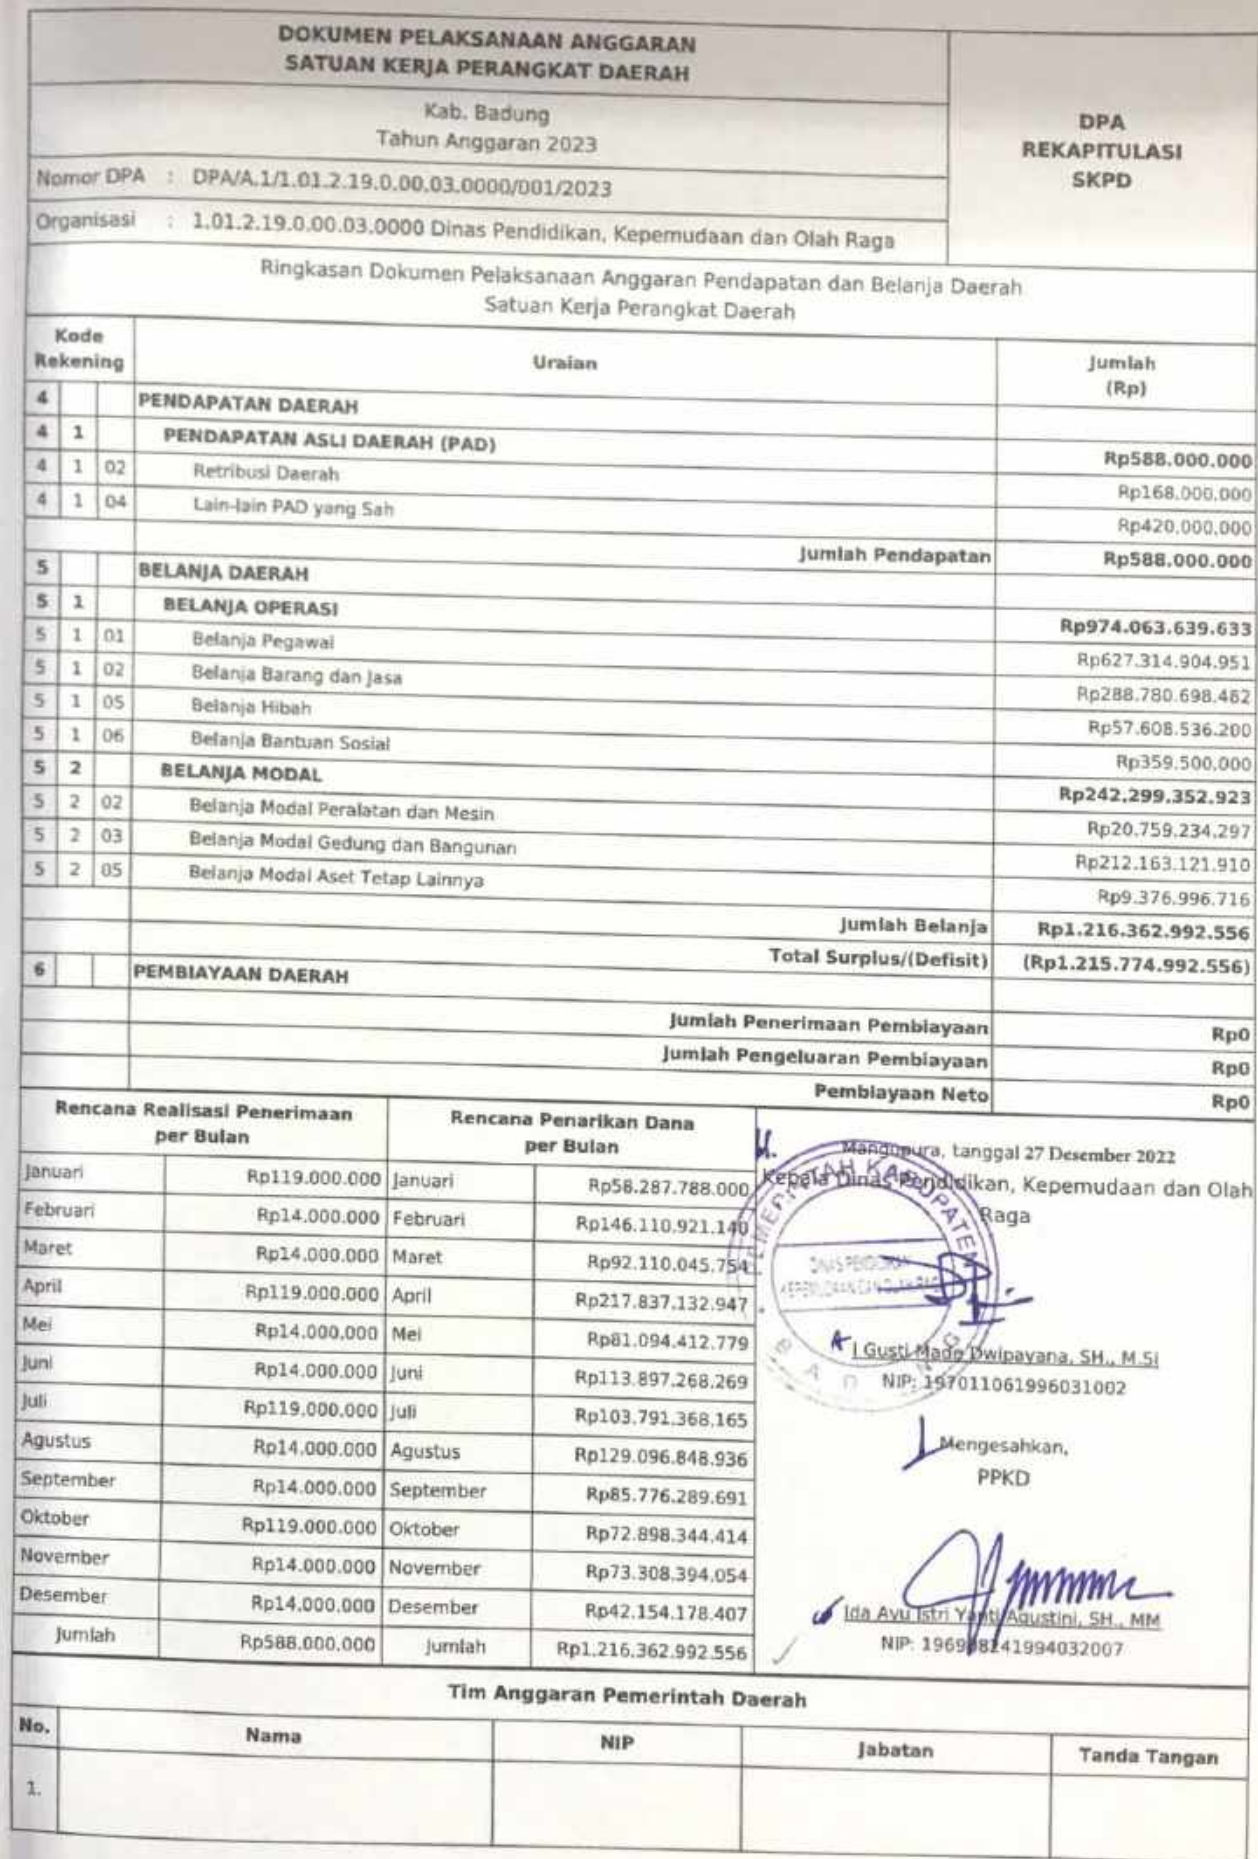 DOKUMEN PELAKSANAAN ANGGARAN
SATUAN KERJA PERANGKAT DAERAH
Kab. Badung
Tahun Anggaran 2023
DPA
REKAPITULASI
SKPD
Nomor DPA : DPA/A.1/1.01.2.19.0.00.03.0000/001/2023
Organisasi : 1.01.2.19.0.00.03.0000 Dinas Pendidikan, Kepemudaan dan Olah Raga
Ringkasan Dokumen Pelaksanaan Anggaran Pendapatan dan Belanja Daerah
Satuan Kerja Perangkat Daerah
Kode Rekening Uraian Jumlah (Rp)
4 PENDAPATAN DAERAH
4 1 PENDAPATAN ASLI DAERAH (PAD) Rp588.000.000
4 1 02 Retribusi Daerah Rp168.000.000
4 1 04 Lain-lain PAD yang Sah Rp420.000.000
Jumlah Pendapatan Rp588.000.000
5 BELANJA DAERAH
5 1 BELANJA OPERASI Rp974.063.639.633
5 1 01 Belanja Pegawai Rp627.314.904.951
5 1 02 Belanja Barang dan Jasa Rp288.780.698.482
5 1 05 Belanja Hibah Rp57.608.536.200
5 1 06 Belanja Bantuan Sosial Rp359.500.000
5 2 BELANJA MODAL Rp242.299.352.923
5 2 02 Belanja Modal Peralatan dan Mesin Rp20.759.234.297
5 2 03 Belanja Modal Gedung dan Bangunan Rp212.163.121.910
5 2 05 Belanja Modal Aset Tetap Lainnya Rp9.376.996.716
Jumlah Belanja Rp1.216.362.992.556
Total Surplus/(Defisit) (Rp1.215.774.992.556)
6 PEMBIAYAAN DAERAH
Jumlah Penerimaan Pembiayaan Rp0
Jumlah Pengeluaran Pembiayaan Rp0
Pembiayaan Neto Rp0
Rencana Realisasi Penerimaan per Bulan Rencana Penarikan Dana per Bulan
Januari Rp119.000.000 Januari Rp58.287.788.000
Februari Rp14.000.000 Februari Rp146.110.921.140
Maret Rp14.000.000 Maret Rp92.110.045.754
April Rp119.000.000 April Rp217.837.132.947
Mei Rp14.000.000 Mei Rp81.094.412.779
Juni Rp14.000.000 Juni Rp113.897.268.269
Juli Rp119.000.000 Juli Rp103.791.368.165
Agustus Rp14.000.000 Agustus Rp129.096.848.936
September Rp14.000.000 September Rp85.776.289.691
Oktober Rp119.000.000 Oktober Rp72.898.344.414
November Rp14.000.000 November Rp73.308.394.054
Desember Rp14.000.000 Desember Rp42.154.178.407
Jumlah Rp588.000.000 Jumlah Rp1.216.362.992.556
Mangupura, tanggal 27 Desember 2022
Kepala Dinas Pendidikan, Kepemudaan dan Olah
Raga
PEMERINTAH KABUPATEN
DINAS PENDIDIKAN
KEPEMUDAAN DAN OLAH RAGA
BADUNG
I Gusti Made Dwipayana, SH., M.Si
NIP: 197011061996031002
Mengesahkan,
PPKD
Ida Ayu Istri Yanti Agustini, SH., MM
NIP: 196908241994032007
Tim Anggaran Pemerintah Daerah
No. Nama NIP Jabatan Tanda Tangan
1.